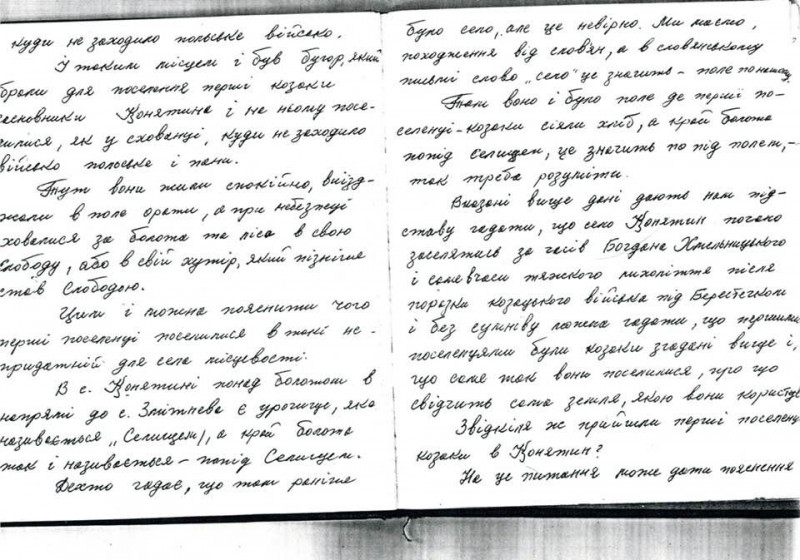 куди не заходило польське військо.
У таким місцем і був бугор, який
брали для поселення перші козаки
засновники Конятина і на ньому посе-
лилися, як у схованці, куди не заходило
військо польське і пани.
Тут вони жили спокійно, виїзд-
жали в поле орати, а при небезпеці
ховалися за болота та ліса в свою
слободу, або в свій хутір, який пізніше
став Слободою.
Цим і можна пояснити чого
перші поселенці поселилися в такі не-
придатній для села місцевості.
В с. Конятині понад болотом в
напрямі до с. Змітнева є урочище, яке
називається „Селищем", а край болота
так і називається – попід Селищем.
Дехто гадає, що там раніше
було село, але це невірно. Ми маємо,
походження від слов'ян, а в словянському
письмі слово „село" це значить – поле
Там воно і було поле де перші по-
селенці-козаки сіяли хліб, а край болота
попід Селищем, це значить по під полем, –
так треба розуміти.
Вказані вище дані дають нам під-
ставу гадати, що село Конятин почало
заселятись за часів Богдана Хмельницького
і саме в часи тяжкого лихоліття після
поразки козацького війська під Берестечком
і без сумніву можна гадати, що першими
поселенцями були козаки згадані вище і,
що саме так вони поселилися, про що
свідчить сама земля, якою вони користув
Звідкіля ж прийшли перші поселенц
козаки в Конятин?
На це питання може дати пояснення